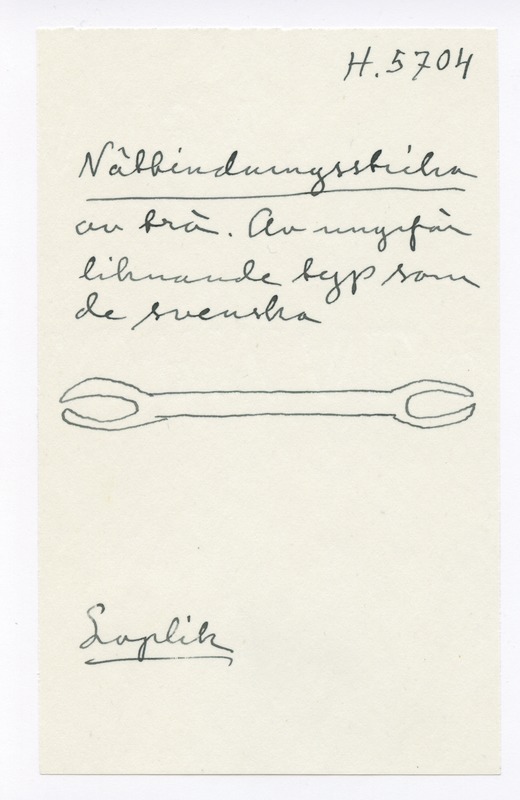 H.5704
Nätbindningssticka
av trä. Av ungefär
liknande typ som
de svenska
Loplik